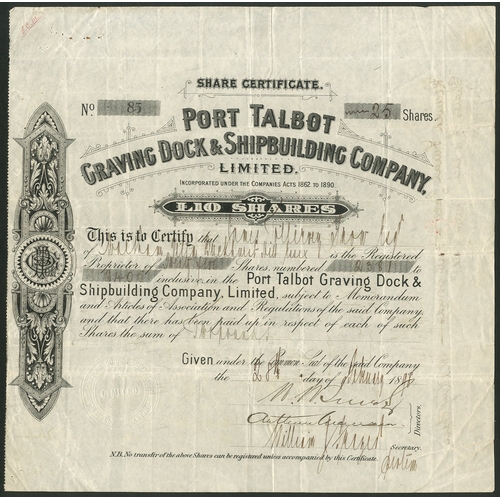 SHARE CERTIFICATE.
No. 85
25 Shares.
PORT TALBOT
GRAVING DOCK & SHIPBUILDING COMPANY,
LIMITED.
INCORPORATED UNDER THE COMPANIES ACTS 1862 TO 1890.
£10 SHARES
This is to Certify that
is the Registered
Proprietor of Shares, numbered to
inclusive in the Port Talbot Graving Dock &
Shipbuilding Company, Limited, subject to Memorandum
and Articles of Association and Regulations of the said Company
and that there has been paid up in respect of each of such
Shares the sum of
Given under the Common Seal of the said Company
the 28th day of February 189
Directors.
William
Secretary.
pro tem
N.B. No transfer of the above Shares can be registered unless accompanied by this Certificate.